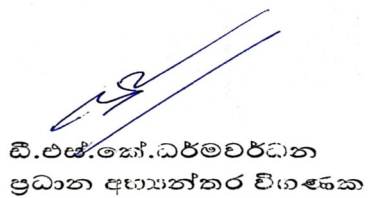 ඩී.එස්.කේ.ධර්මවර්ධන
ප්‍රධාන අභ්‍යන්තර විගණක